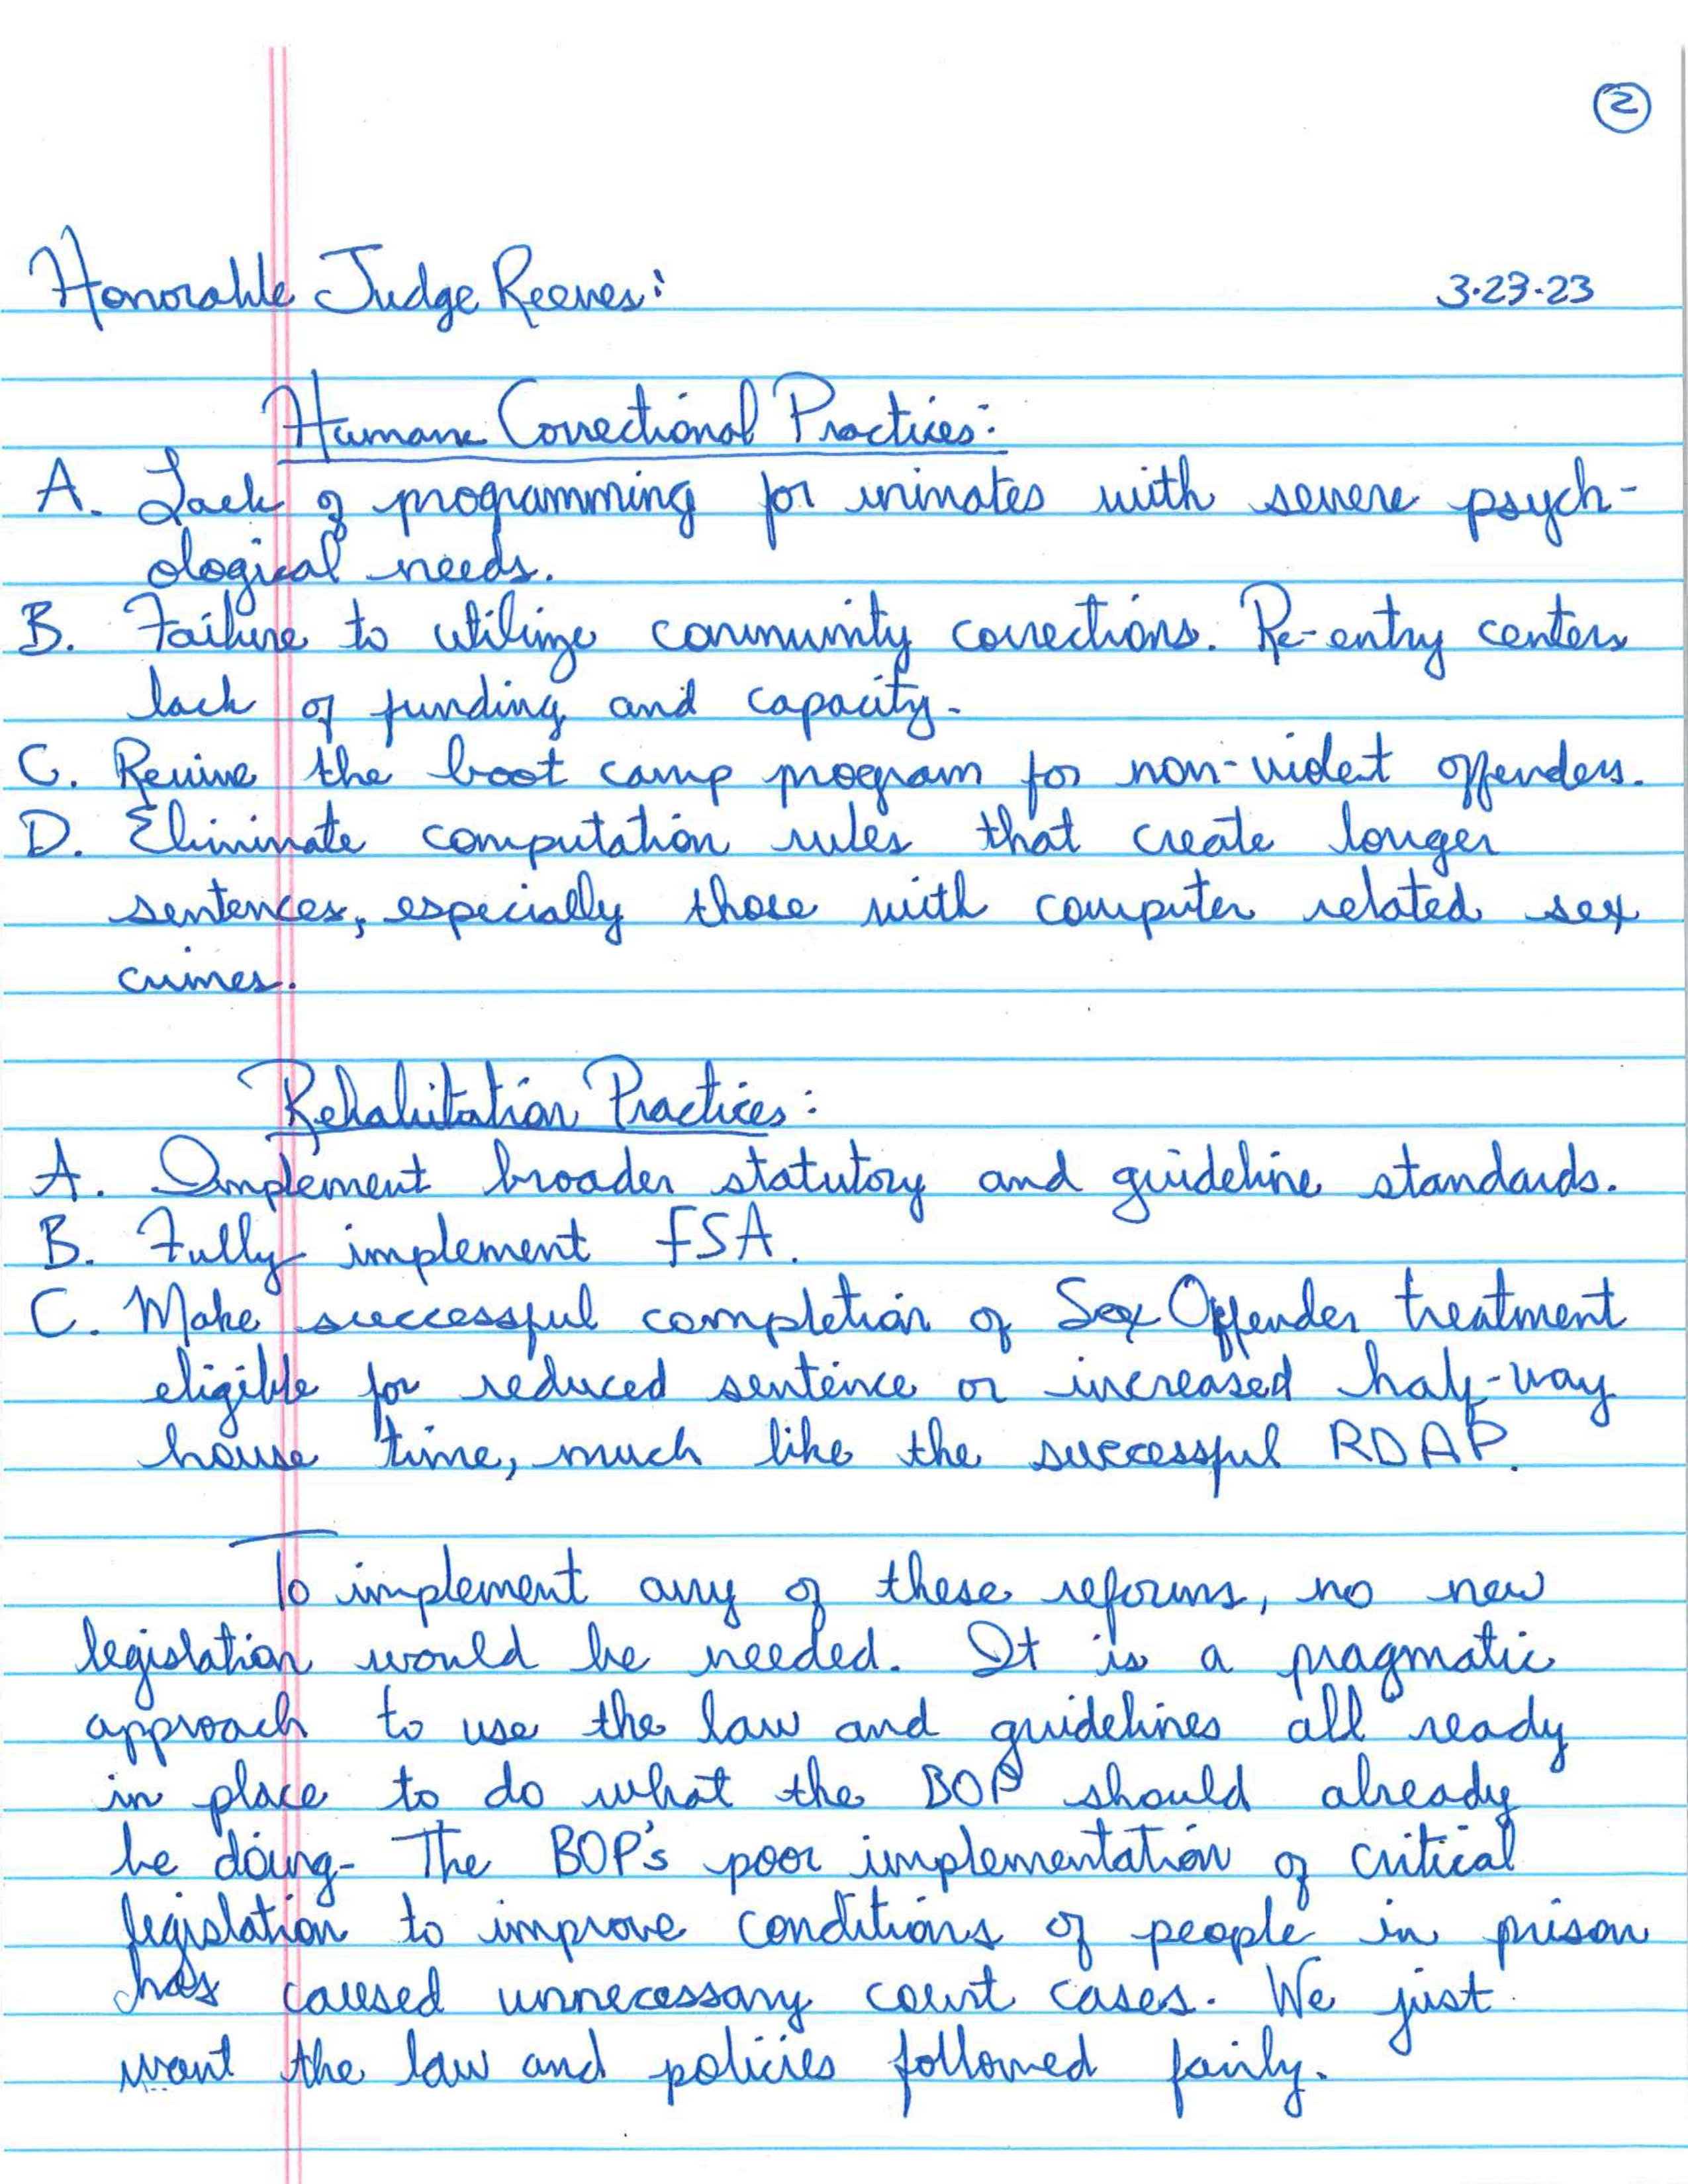 2
Honorable Judge Reeves: 3-23-23
Humane Correctional Practices:
A. Lack of programming for inmates with severe psych-
ological needs.
B. Failure to utilize community corrections. Re-entry centers
lack of funding and capacity.
C. Revive the boot camp program for non-violent offenders.
D. Eliminate computation rules that create longer
sentences, especially those with computer related sex
crimes.
Rehabilitation Practices:
A. Implement broader statutory and guideline standards.
B. Fully implement FSA.
C. Make successful completion of Sex Offender treatment
eligible for reduced sentence or increased half-way
house time, much like the successful RDAP.
To implement any of these reforms, no new
legislation would be needed. It is a pragmatic
approach to use the law and guidelines all ready
in place to do what the BOP should already
be doing- The BOP's poor implementation of critical
legislation to improve conditions of people in prison
has caused unnecessary court cases. We just
want the law and policies followed fairly.